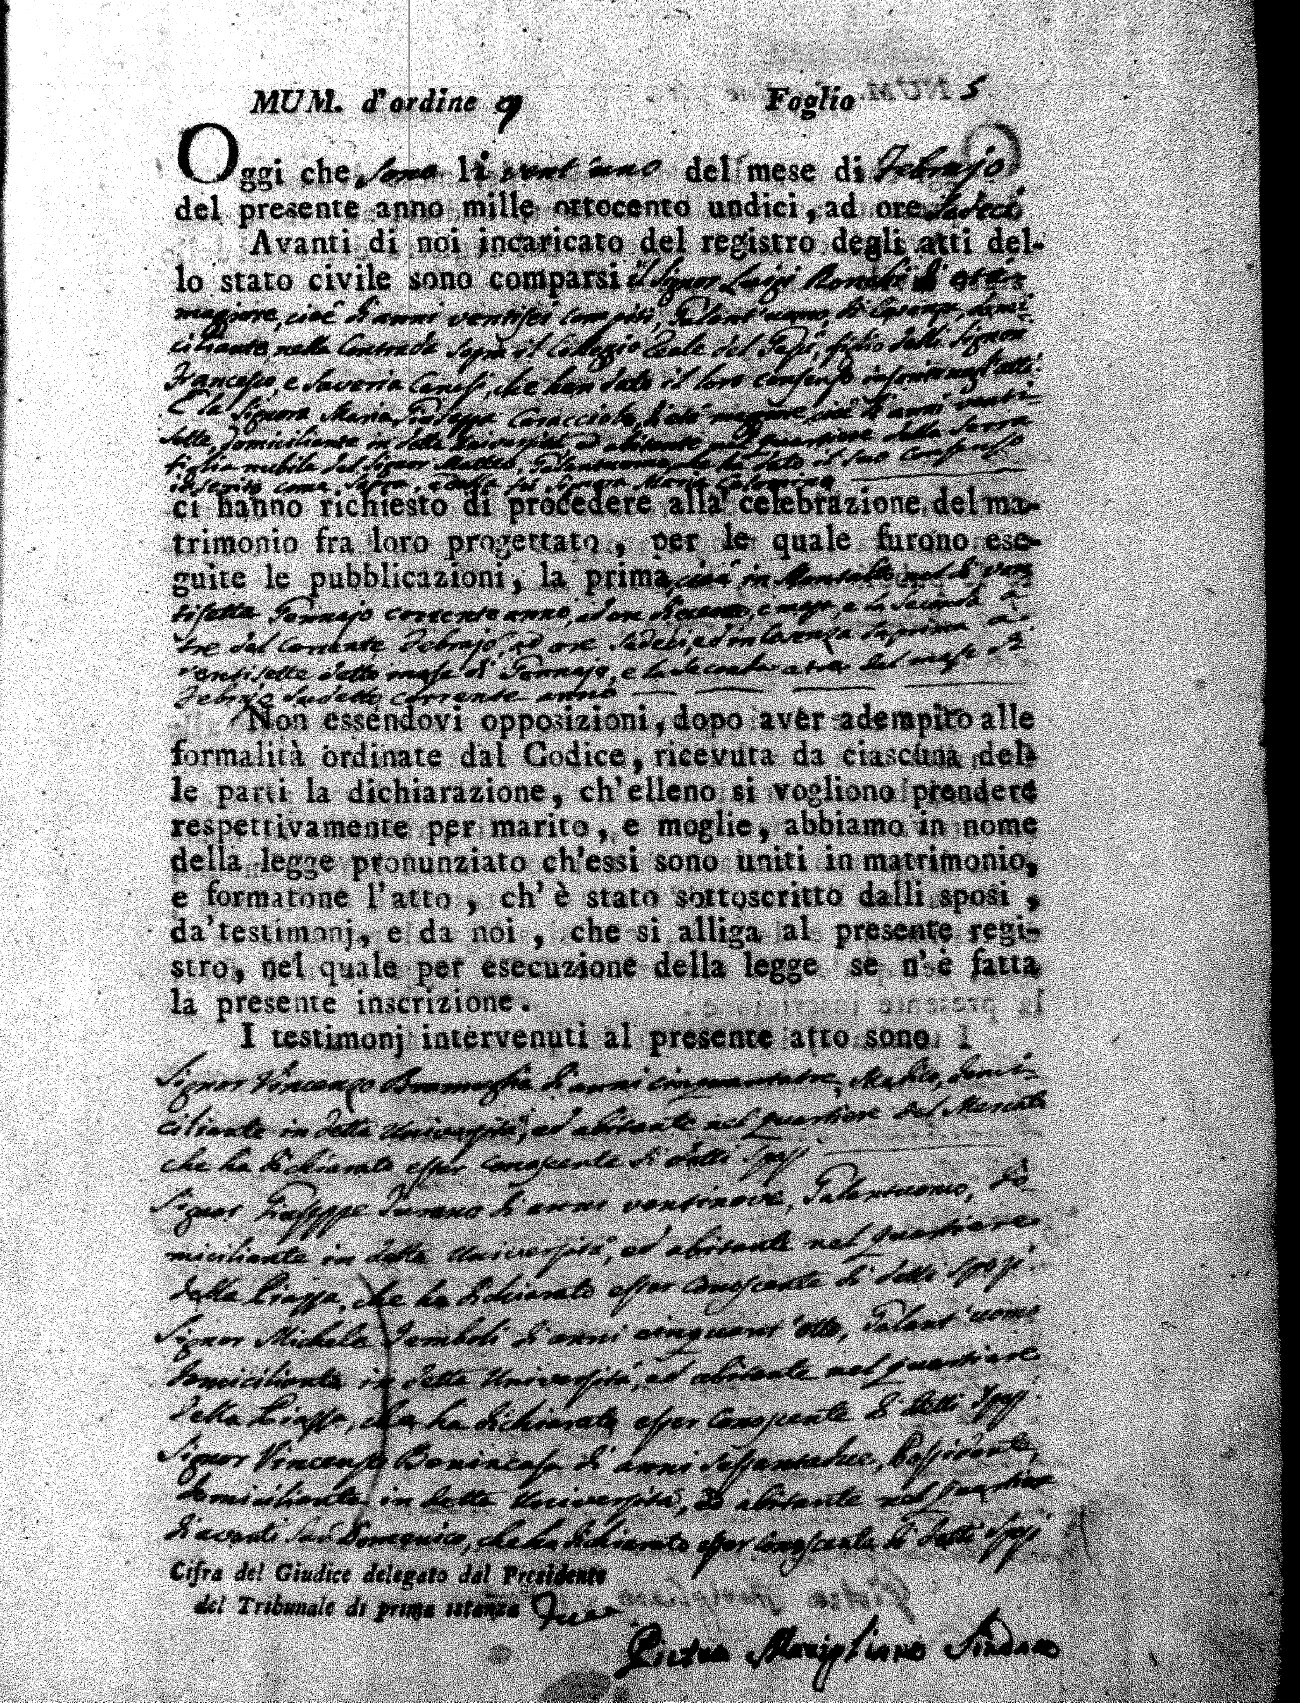 MUM. d'ordine 9 Foglio 5
Oggi che sono li vent'uno del mese di Febrajo
del presente anno mille ottocento undici, ad ore sedeci
Avanti di noi incaricato del registro degli atti del-
lo stato civile sono comparsi il Signor Luigi Ronchi di età
maggiore, cioè d'anni ventisei compiti, Galant'uomo, di Cosenza, domi-
ciliante nella Contrada sopra il Collegio Reale del Gesù, figlio delli Signori
Francesco, e Saveria Canosi, che han dato il loro consenso
E la Signora Maria Giuseppa Caracciolo, d'età maggiore, cioè d'anni venti-
sette domiciliante in detta Università ed abitante nel quartiere della Serra
figlia nubile del Signor Matteo, Galantuomo, che ha dato il suo consenso
inserito come sopra, e della fu Signora Maria
ci hanno richiesto di procedere alla celebrazione del ma-
trimonio fra loro progettato, per le quale furono ese-
guite le pubblicazioni, la prima cioè in Montalto nel dì ven
tisette Gennajo corrente anno, ad ore e mezza, e la seconda a
tre del corrente Febrajo, ad ore sedeci, ed in Cosenza la prima a
ventisette detto mese di Gennajo, e la seconda a tre del mese di
Febrajo sudetto corrente anno
Non essendovi opposizioni, dopo aver adempito alle
formalità ordinate dal Codice, ricevuta da ciascuna del-
le parti la dichiarazione, ch'elleno si vogliono prendere
respettivamente per marito, e moglie, abbiamo in nome
della legge pronunziato ch'essi sono uniti in matrimonio,
e formatone l'atto, ch'è stato sottoscritto dalli sposi,
da'testimonj, e da noi, che si alliga al presente regi-
stro, nel quale per esecuzione della legge se n'è fatta
la presente inscrizione.
I testimonj intervenuti al presente atto sono
Signor Vincenzo d'anni cinquantatre, Medico, domi-
ciliante in detta Università, ed abitante nel quartiere del Mercato
che ha dichiarato esser conoscente di detti Sposi
Signor Giuseppe Turano d'anni ventinove, Galantuomo, do
miciliante in detta Università, ed abitante nel quartiere
della Piazza, che ha dichiarato esser conoscente di detti Sposi.
Signor Michele d'anni cinquant'otto, Galant'uomo
domiciliante in detta Università, ed abitante nel quartiere
della Piazza, che ha dichiarato esser conoscente di detti Sposi.
Signor Vincenzo Bonincasa d'anni sessantadue, Possidente,
domiciliante in detta Università, ed abitante nel quartiere
di avanti San Domenico, che ha dichiarato esser conoscente di detti Sposi
Cifra del Giudice delegato dal Presidente
del Tribunale di prima istanza
Pietro Marigliano Sindaco